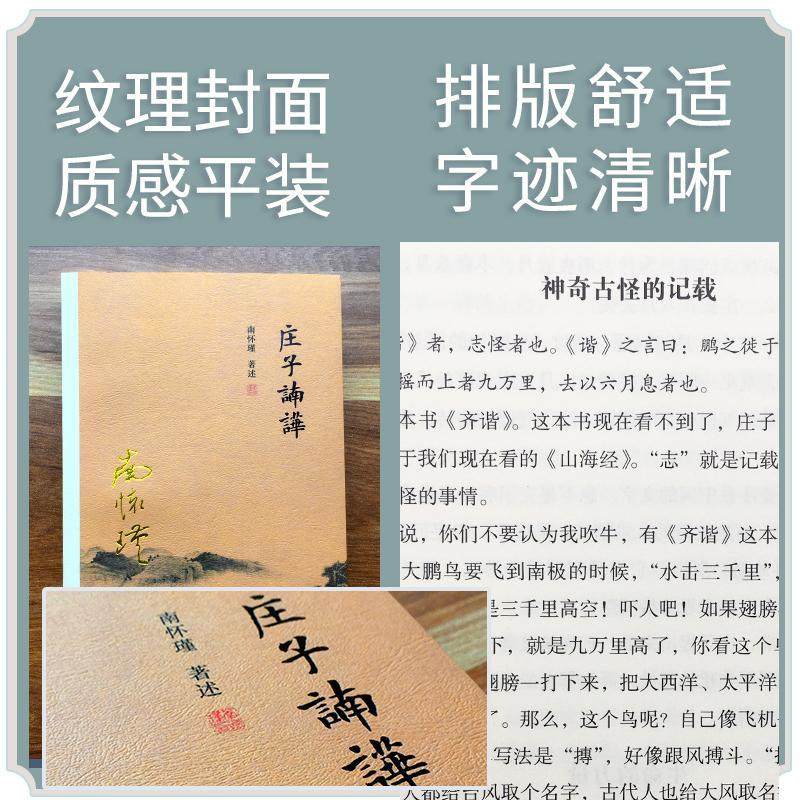 纹理封面
质感平装
排版舒适
字迹清晰
庄子諵譁
南怀瑾 著述
南怀瑾
庄子諵譁
南怀瑾 著述
神奇古怪的记载
》者，志怪者也。《谐》之言曰：鹏之徙于
摇而上者九万里，去以六月息者也。
本书《齐谐》。这本书现在看不到了，庄子
于我们现在看的《山海经》。“志”就是记载
怪的事情。
说，你们不要认为我吹牛，有《齐谐》这本
大鹏鸟要飞到南极的时候，“水击三千里”，
是三千里高空！吓人吧！如果翅膀
下，就是九万里高了，你看这个
翅膀一打下来，把大西洋、太平洋
了。那么，这个鸟呢？自己像飞机
写法是“搏”，好像跟风搏斗。“
人都给台风取个名字，古代人也给大风取名